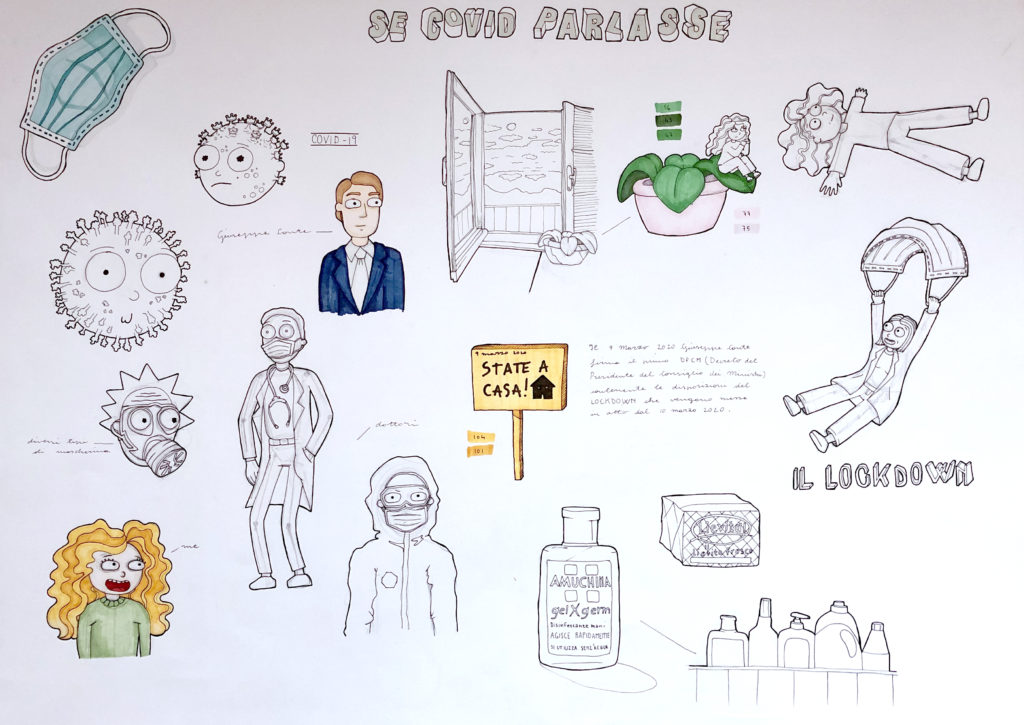 SE COVID PARLASSE
COVID-19
Giuseppe Conte
16
43
42
77
75
9 marzo 2020
STATE A
CASA!
Il 9 marzo 2020 Giuseppe Conte
firma il primo DPCM (Decreto del
Presidente del Consiglio dei Ministri)
contenente le disposizioni del
LOCKDOWN che vengono messe
in atto dal 10 marzo 2020.
104
101
diversi tipi
di mascherina
dottori
me
IL LOCKDOWN
Lievito
Lievito fresco
AMUCHINA
gel X germ
Disinfettante mani
AGISCE RAPIDAMENTE
SI UTILIZZA SENZ'ACQUA